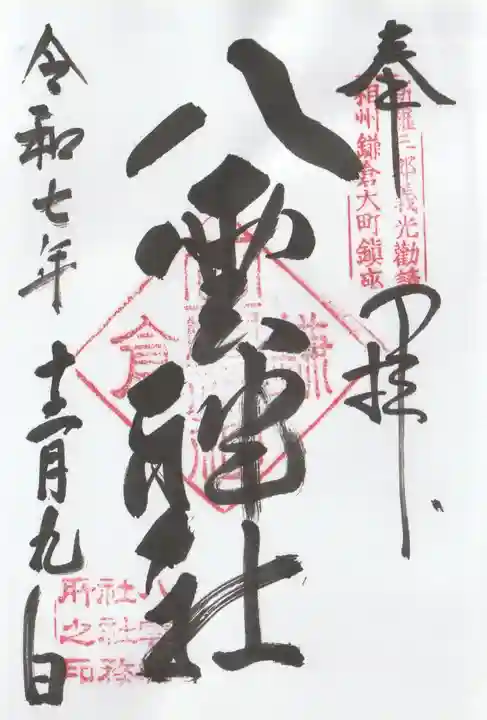 奉拝
新羅三郎義光勧請
相州鎌倉大町鎮座
八雲神社
鎌倉
令和七年十二月九日
八雲神社
社務所
之印